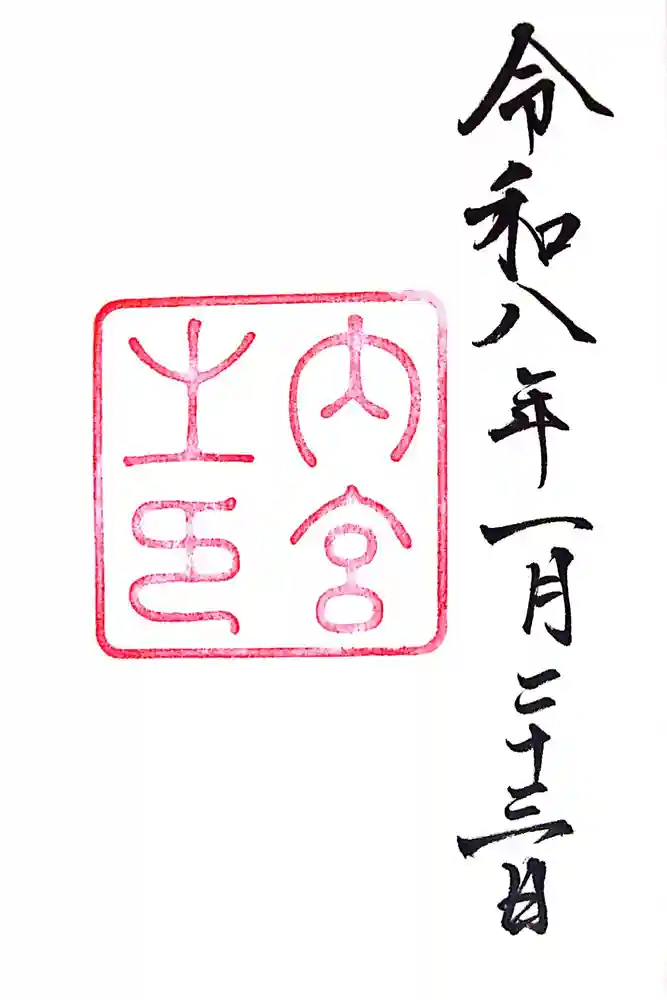 令和八年一月二十三日
内宮
之印